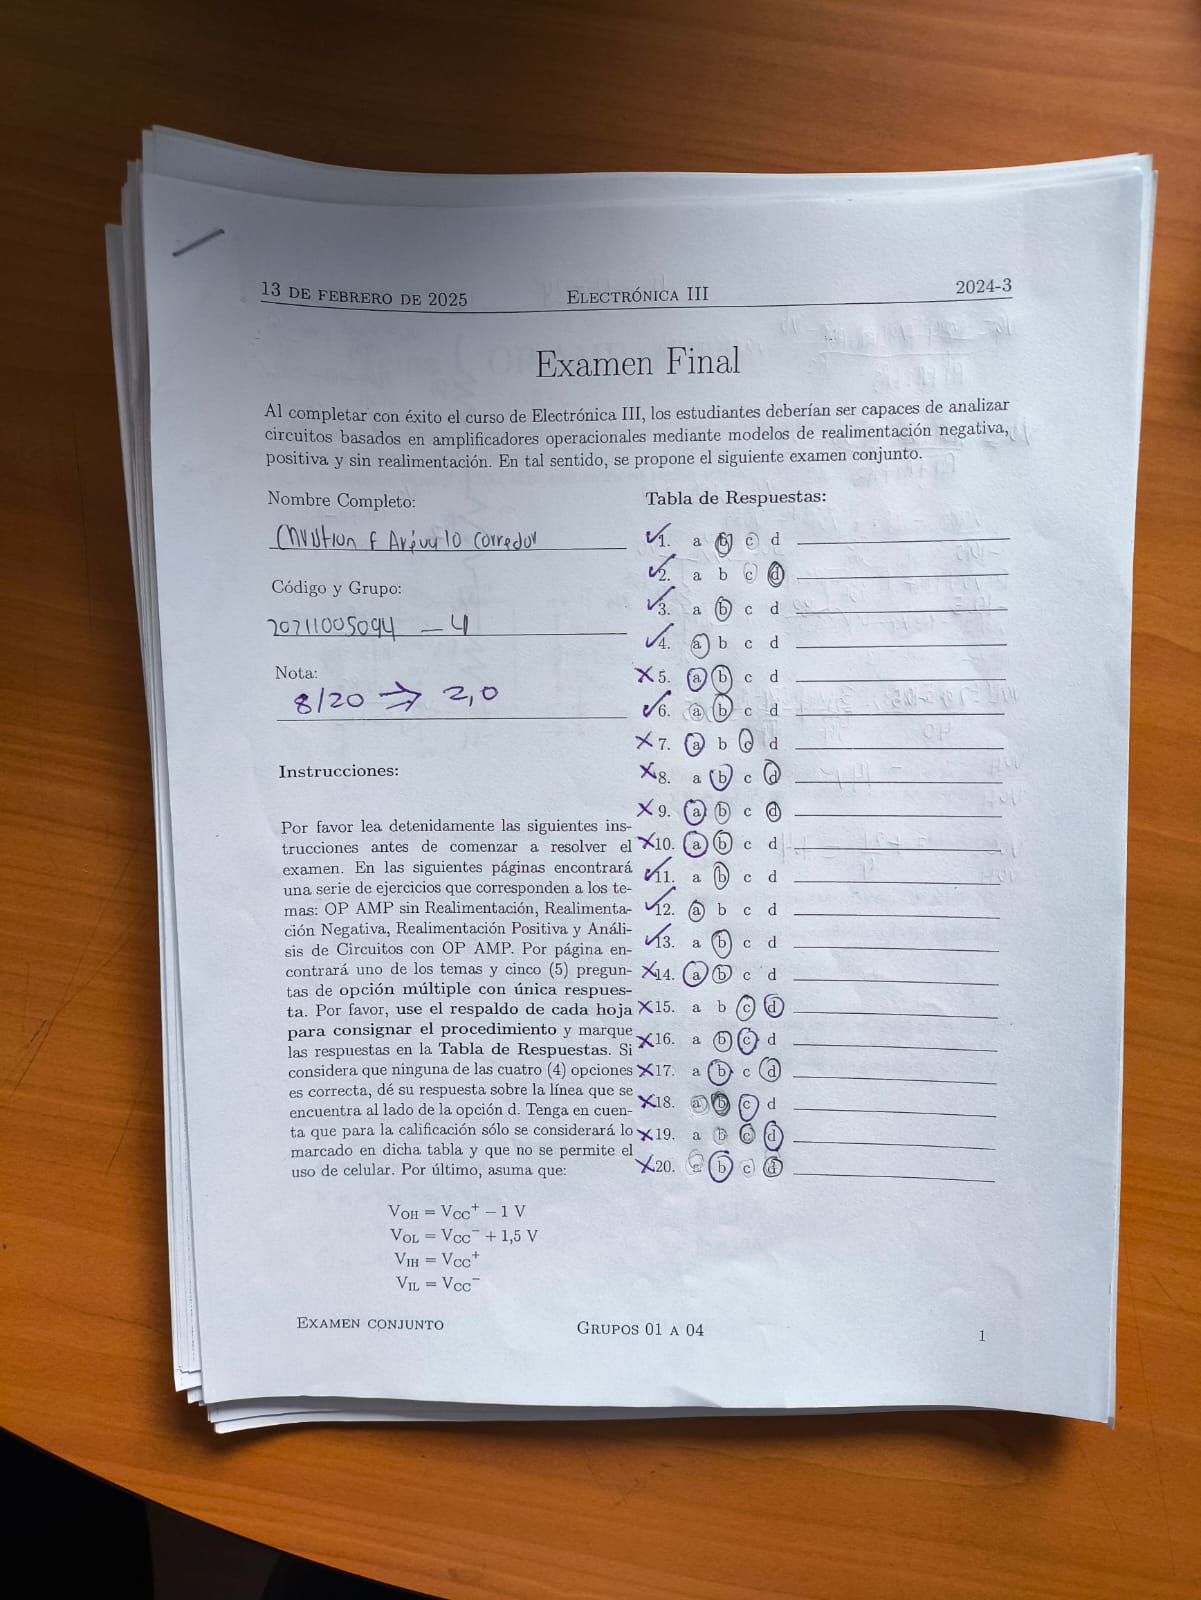 13 DE FEBRERO DE 2025 ELECTRÓNICA III 2024-3
Examen Final
Al completar con éxito el curso de Electrónica III, los estudiantes deberían ser capaces de analizar
circuitos basados en amplificadores operacionales mediante modelos de realimentación negativa,
positiva y sin realimentación. En tal sentido, se propone el siguiente examen conjunto.
Nombre Completo:
F Corredor
Código y Grupo:
20211005094 - 4
Nota:
8/20 → 2,0
Instrucciones:
Por favor lea detenidamente las siguientes ins-
trucciones antes de comenzar a resolver el
examen. En las siguientes páginas encontrará
una serie de ejercicios que corresponden a los te-
mas: OP AMP sin Realimentación, Realimenta-
ción Negativa, Realimentación Positiva y Análi-
sis de Circuitos con OP AMP. Por página en-
contrará uno de los temas y cinco (5) pregun-
tas de opción múltiple con única respues-
ta. Por favor, use el respaldo de cada hoja
para consignar el procedimiento y marque
las respuestas en la Tabla de Respuestas. Si
considera que ninguna de las cuatro (4) opciones
es correcta, dé su respuesta sobre la línea que se
encuentra al lado de la opción d. Tenga en cuen-
ta que para la calificación sólo se considerará lo
marcado en dicha tabla y que no se permite el
uso de celular. Por último, asuma que:
VOH = VCC+ − 1 V
VOL = VCC− + 1,5 V
VIH = VCC+
VIL = VCC−
Tabla de Respuestas:
✓1. a b c d
✓2. a b c d
✓3. a b c d
✓4. a b c d
✗5. a b c d
✓6. a b c d
✗7. a b c d
✗8. a b c d
✗9. a b c d
✗10. a b c d
✓11. a b c d
✓12. a b c d
✓13. a b c d
✗14. a b c d
✗15. a b c d
✗16. a b c d
✗17. a b c d
✗18. a b c d
✗19. a b c d
✗20. a b c d
EXAMEN CONJUNTO GRUPOS 01 A 04 1